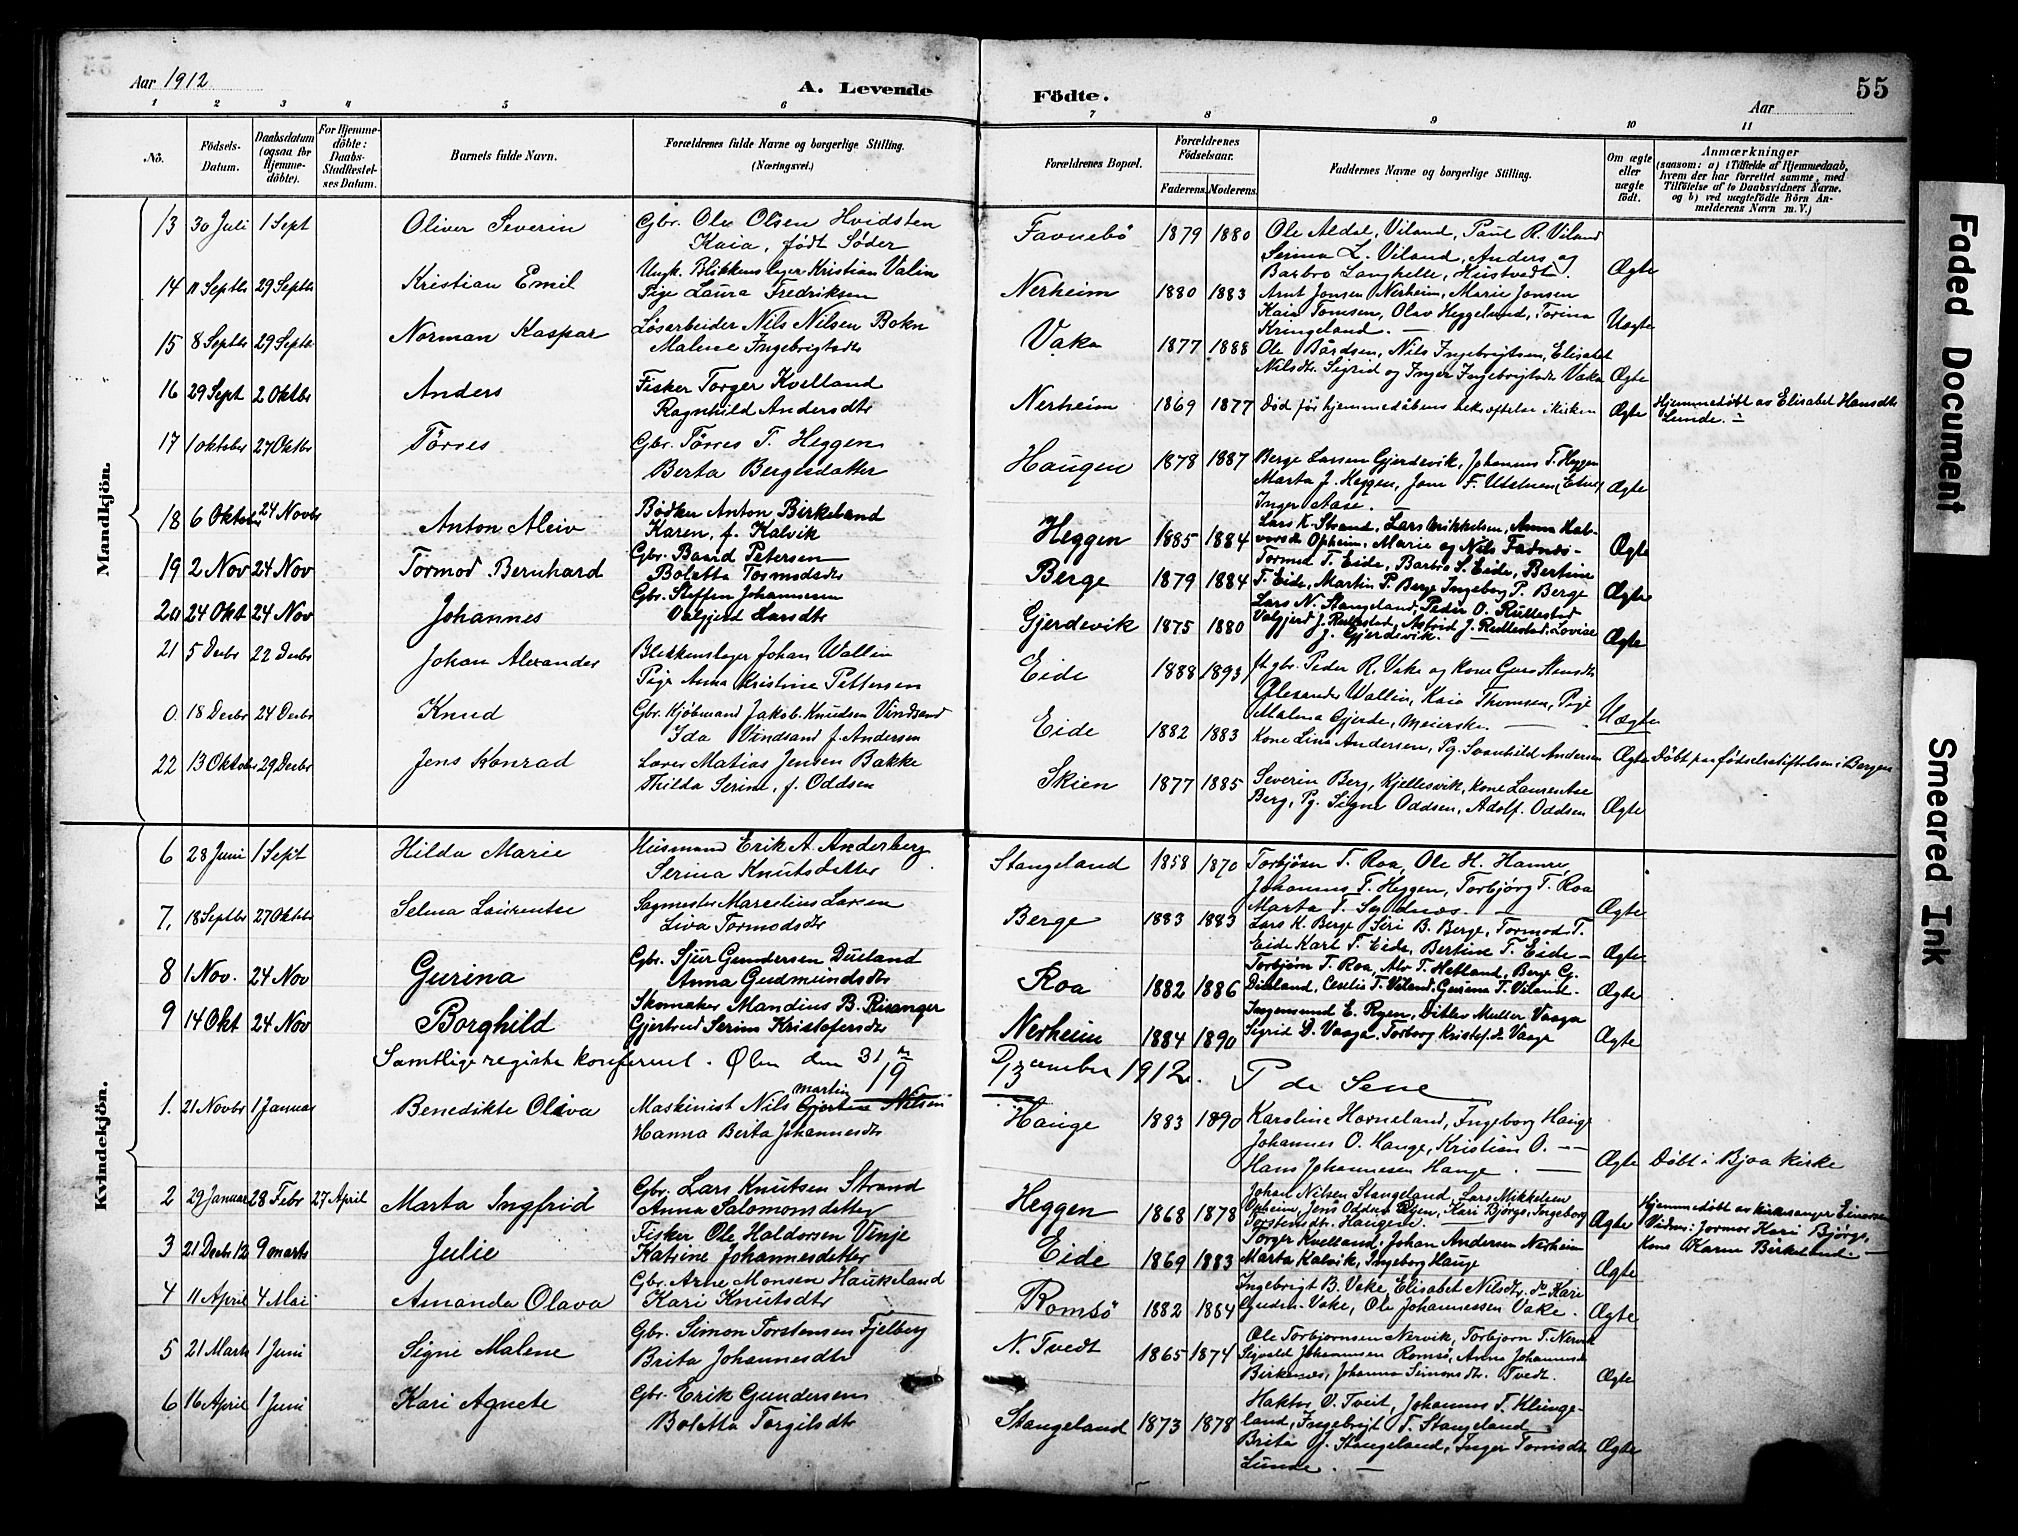 Aar 1912
A. Levende
Födte.
55
Aar
1 2 3 4 5 6 7 8 9 10 11
No. Födsels-Datum. Daabsdatum (ogsaa for Hjemme-döbte). For Hjemme-döbte: Daabs-Stadfæstelses Datum. Barnets fulde Navn. Forældrenes fulde Navne og borgerlige Stilling. (Næringsvei.)
Forældrenes Bopæl. Forældrenes Födselsaar. Faderens. Moderens. Faddernes Navne og borgerlige Stilling. Om ægte eller uægte födt. Anmærkninger (saasom: a) i Tilfælde af Hjemmedaab, hvem der har forrettet samme, med Tilföielse af to Daabsvidners Navne, og b) ved uægtefödte Börn Anmelderens Navn m. V.)
Mandkjön.
13 30 Juli 1 Sept Oliver Severin Gbr. Ole Olsen Hvidsten
Kaia, født Søder
Favnebö 1879 1880 Ole Aldal, Viland, Paul R. Viland
Serina L. Viland, Anders og
Barbro Langhelle, Hustvedt. Ægte
14 11 Septbr 29 Septbr Kristian Emil Ungk. Blikkenslager Kristian Valin
Pige Laura Fredriksen
Nerheim 1880 1883 Arnt Jonsen Nerheim, Marie Jonsen
Kaia Tomsen, Olav Heggelund, Torina
Kringeland. — Uægte
15 8 Septbr 29 Septbr Norman Kaspar Løsarbeider Nils Nilsen Bokn
Malene Ingebrigtsdtr
Vaka 1877 1888 Ole Bårdsen, Nils Ingebrigtsen, Elisabet
Nilsdtr. Sigrid og Inger Ingebrigtsdtr Vaka Ægte
16 29 Sept 2 Oktbr Anders Fisker Torger Kvelland
Ragnhild Andersdtr
Nerheim 1869 1877 Død før hjemmedåbens bekræftelse i kirken Ægte Hjemmedøbt av Elisabet Hansdtr
Lunde. —
17 1 Oktober 27 Oktbr Tørres Gbr. Tørres T. Heggen
Berta Bergesdatter
Haugen 1878 1887 Berge Larsen Gjerdevik, Johannes T. Heggen
Marta J. Heggen, Jone F. Utstuen, Etne,
Inger Aase. — Ægte
18 6 Oktober 24 Novbr Anton Aleiv Bødker Anton Birkeland
Karen, f. Kalvik
Heggen 1885 1884 Lars K. Strand, Lars Mikkelsen, Anna Halvorsdtr Opheim, Marie og Nils Fadnes - Ægte
19 2 Nov 24 Nov Tormod Bernhard Gbr. Baard Petersen
Boletta Tormodsdtr
Berge 1879 1884 Tormod T. Eide, Barbro S. Eide, Bertine
T. Eide, Martin P. Berge Ingeborg P. Berge Ægte
20 24 Okt 24 Nov Johannes Gbr. Steffen Johannesen
Valgjerd Larsdtr
Gjerdevik 1875 1880 Lars N. Stangeland, Peder O. Rullestad
Valgjerd J. Rullestad, Astrid J. Rullestad, Lovise
J. Gjerdevik. — Ægte
21 5 Decbr 22 Decbr Johan Alexander Blikkenslager Johan Wallin
Pige Anna Kristine Pettersen
Eide 1888 1893 Gbr. Peder R. Vake og Kone Guro Stensdtr
Alexander Wallin, Kaia Thomsen, Pige
Malena Gjerde, Meierske. — Uægte
0 18 Decbr 24 Decbr Knud Gbr. Kjøbmand Jakob Knudsen Vindsand
Ida Vindsand f. Andersen
Eide 1882 1883 Kone Lina Andersen, Pg. Svanhild Andersen Ægte Døbt paa fødselsstiftelsen i Bergen
22 13 Oktober 29 Decbr Jens Konrad Lærer Matias Jensen Bakke
Thilda Serine, f. Oddsen
Skien 1877 1885 Severin Berg, Kjellesvik, Kone Laurentse
Berg, Pg. Signe Oddsen, Adolf Oddsen Ægte
Kvindekjön.
6 28 Juni 1 Sept Hilda Marie Husmand Erik A. Anderberg
Serina Knutsdatter
Stangeland 1858 1870 Torbjörn T. Roa, Ole H. Hamre,
Johannes T. Heggen, Torbjörg T. Roa
Marta T. Sydnæs. — Ægte
7. 18 Septbr 27 Oktbr Selma Laurentse Sagmester Marselius Larsen
Liva Tormodsdtr
Berge 1883 1883 Lars K. Berge Siri B. Berge, Tormod T.
Eide Karl T. Eide, Bertine T. Eide — Ægte
8 1 Nov. 24 Nov Gurina Gbr. Sjur Gundersen Dueland
Anna Gudmundsdtr
Roa 1882 1886 Torbjørn T. Roa, Alv T. Hetland, Berge G.
Dueland, Ceselie T. Viland, Gurina T. Viland. Ægte
9 14 Okt 24 Nov Borghild Skomaker Mandius B. Risanger
Gjertrud Serine Kristofersdtr
Nerheim 1884 1890 Ingemund E. Ryen, Ditlev Muller Vaaga
Sigrid D. Vaaga, Torborg Kristofdtr Vaage Ægte
Samtlige registre konfereret. Ølen den 31te December 1912. P de Sene
1913
1. 21 Novbr 1 Januar Benedikte Oliva Maskinist Nils Martin Gjertsen Nilsen
Hanna Berta Johannesdtr
Hauge 1883 1890 Karoline Horneland, Ingeborg Hauge
Johannes O. Hauge, Kristian O. —
Hans Johannesen Hauge. — Ægte Døbt i Bjoa Kirke
2 29 Januar 28 Febr 27 April Marta Ingfrid Gbr. Lars Knutsen Strand
Anna Salomonsdatter
Heggen 1868 1878 Johan Nilsen Stangeland, Lars Mikkelsen
Opheim, Jens Oddsen Ryen, Kari Bjørgo, Ingeborg
Torstensdtr. Haugene. — Ægte Hjemmedøbt av kirkesanger Einarsen
Vidner: Jormor Kari Bjørgo,
Kone Karen Birkeland. —
3 21 Decbr 12 9 marts Julie Fisker Ole Haldorsen Vinje
Katrine Johannesdatter
Eide 1869 1883 Torger Kvelland, Johan Andersen Nerheim
Marta Kalvik, Ingeborg Hauge Ægte
4 11 April 4 Mai Amanda Olava Gbr. Arne Monsen Haukeland
Kari Knutsdtr
Romsö 1882 1884 Ingebrigt B. Vake, Elisabet Nilsdtr. do Kari
Gudm. Vake, Ole Johannessen Vake. Ægte
5 21 Marts 1 Juni Signe Malene Gbr. Simon Torstensen Fjelberg
Brita Johannesdtr
N. Tvedt 1865 1874 Ole Torbjørnsen Nervik, Torbjørn T. Nervik
Sigvald Johannesen Romsø, Anna Johannesdtr
Birkenes, Johanna Simonsdtr. Tvedt. Ægte
6 16 April 1 Juni Kari Agnete Gbr. Erik Gundersen
Boletta Torgilsdtr
Stangeland 1873 1878 Haktor V. Tveit, Johannes T. Klungeland, Ingebrigt T. Stangeland
Brita J. Stangeland, Inger Torrisdtr
Lunde. — Ægte
Faded Document
Smeared Ink